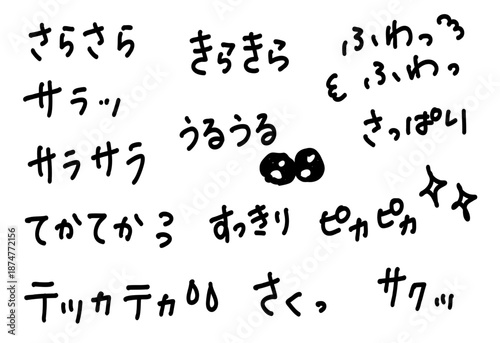 さらさら
きらきら
ふわっ
ふわっ
サラッ
うるうる
さっぱり
サラサラ
てかてか
すっきり
ピカピカ
テッカテカ
さくっ
サクッ
Adobe Stock | #1874772156
Adobe Stock